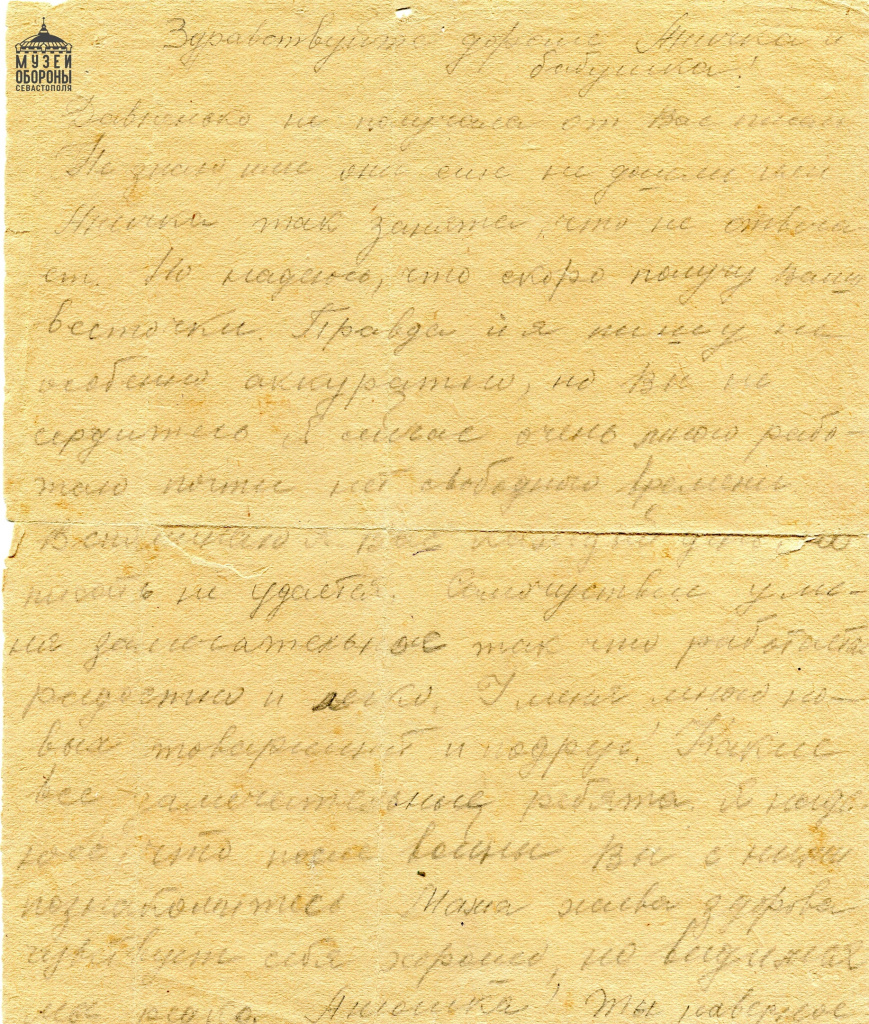 МУЗЕЙ
ОБОРОНЫ
СЕВАСТОПОЛЯ
Здравствуйте дорогие Анечка и
бабушка!
Давненько не получала от Вас писем
Не знаю, или они еще не дошли или
Анечка так занята, что не отвеча
ет. Но надеюсь, что скоро получу Ваши
весточки. Правда и я пишу не
особенно аккуратно, но Вы не
сердитесь. Я сейчас очень много рабо-
таю почти нет свободного времени
Вспоминаю я Вас каждый день но
писать не удается. Самочувствие у ме-
ня замечательное так что работается
радостно и легко. У меня много но-
вых товарищей и подруг! Какие
все замечательные ребята. Я наде
юсь, что после войны Вы с ними
познакомитесь. Мама жива здорова
чувствует себя хорошо, но видимся
мы редко. Анюшка! Ты наверное